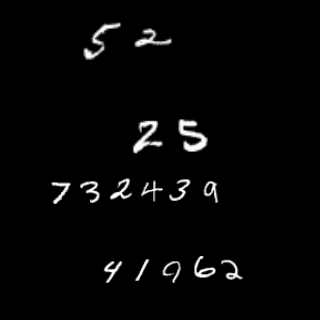 52
25
732439
41962